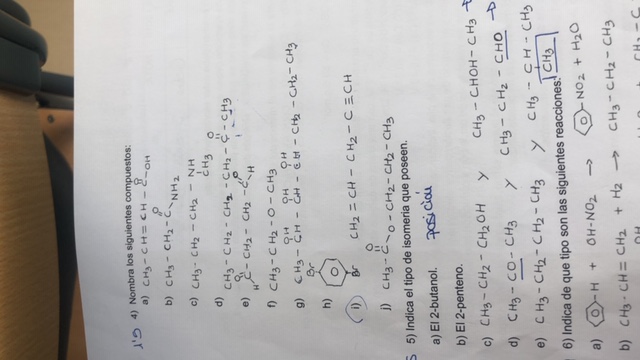 G.1 4) Nombra los siguientes compuestos:
a) CH3 - CH = CH - C - OH
O
b) CH3 - CH2 - C
NH2
c) CH3 - CH2 - CH2 - NH
CH3
O
d) CH3 - CH2 - CH2 - CH2 - C - CH3
e) O C - CH2 - CH2 - C O
H H
f) CH3 - CH2 - O - CH3
OH OH OH
g) CH3 - CH - CH - CH - CH2 - CH2 - CH3
h) Br Br
i) CH2 = CH - CH2 - C ≡ CH
O
j) CH3 - C - O - CH2 - CH2 - CH3
5) Indica el tipo de isomería que poseen.
a) El 2-butanol. posición
b) El 2-penteno.
c) CH3 - CH2 - CH2OH y CH3 - CHOH - CH3
d) CH3 - CO - CH3 y CH3 - CH2 - CHO
e) CH3 - CH2 - CH2 - CH3 y CH3 - CH - CH3
CH3
6) Indica de que tipo son las siguientes reacciones:
a) H + OH-NO2 → NO2 + H2O
b) CH3 - CH = CH2 + H2 → CH3 - CH2 - CH3